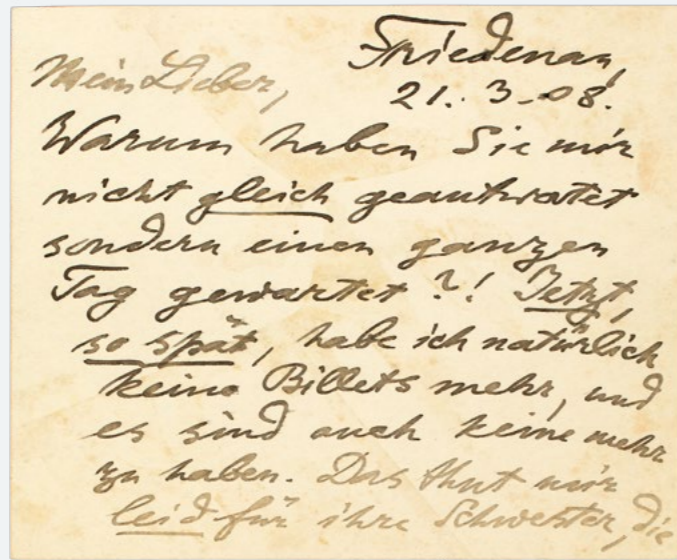 Friedenau,
Mein Lieber,
21. 3. 08.
Warum haben Sie mir
nicht gleich geantwortet
sondern einen ganzen
Tag gewartet ?! Jetzt,
so spät, habe ich natürlich
keine Billets mehr, und
es sind auch keine mehr
zu haben. Das thut mir
leid für ihre Schwester, die